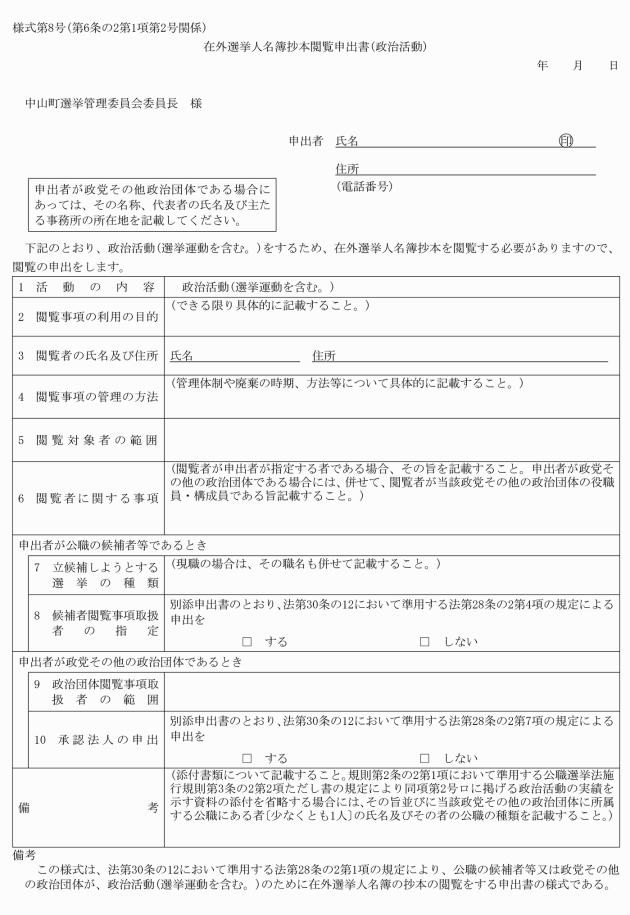 様式第8号(第6条の2第1項第2号関係)
在外選挙人名簿抄本閲覧申出書(政治活動)
年　月　日
中山町選挙管理委員会委員長　様
申出者　氏名　㊞
住所
(電話番号)
申出者が政党その他政治団体である場合に
あっては、その名称、代表者の氏名及び主た
る事務所の所在地を記載してください。
下記のとおり、政治活動(選挙運動を含む。)をするため、在外選挙人名簿抄本を閲覧する必要がありますので、
閲覧の申出をします。
1　活動の内容　政治活動(選挙運動を含む。)
2　閲覧事項の利用の目的　(できる限り具体的に記載すること。)
3　閲覧者の氏名及び住所　氏名　住所
4　閲覧事項の管理の方法　(管理体制や廃棄の時期、方法等について具体的に記載すること。)
5　閲覧対象者の範囲
6　閲覧者に関する事項
(閲覧者が申出者が指定する者である場合、その旨を記載すること。申出者が政党そ
の他の政治団体である場合には、併せて、閲覧者が当該政党その他の政治団体の役職
員・構成員である旨記載すること。)
申出者が公職の候補者等であるとき
7　立候補しようとする
選挙の種類
(現職の場合は、その職名も併せて記載すること。)
8　候補者閲覧事項取扱
者の指定
別添申出書のとおり、法第30条の12において準用する法第28条の2第4項の規定による
申出を
□　する　□　しない
申出者が政党その他の政治団体であるとき
9　政治団体閲覧事項取
扱者の範囲
10　承認法人の申出
別添申出書のとおり、法第30条の12において準用する法第28条の2第7項の規定による
申出を
□　する　□　しない
備考
(添付書類について記載すること。規則第2条の2第1項において準用する公職選挙法施
行規則第3条の2第2項ただし書の規定により同項第2号ロに掲げる政治活動の実績を
示す資料の添付を省略する場合には、その旨並びに当該政党その他の政治団体に所属
する公職にある者〔少なくとも1人〕の氏名及びその者の公職の種類を記載すること。)
備考
この様式は、法第30条の12において準用する法第28条の2第1項の規定により、公職の候補者等又は政党その他
の政治団体が、政治活動(選挙運動を含む。)のために在外選挙人名簿の抄本の閲覧をする申出書の様式である。